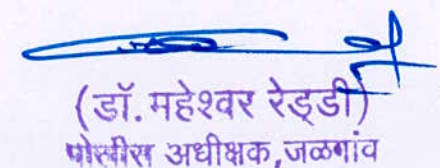 (डॉ. महेश्वर रेड्डी)
पोलीस अधीक्षक, जळगांव